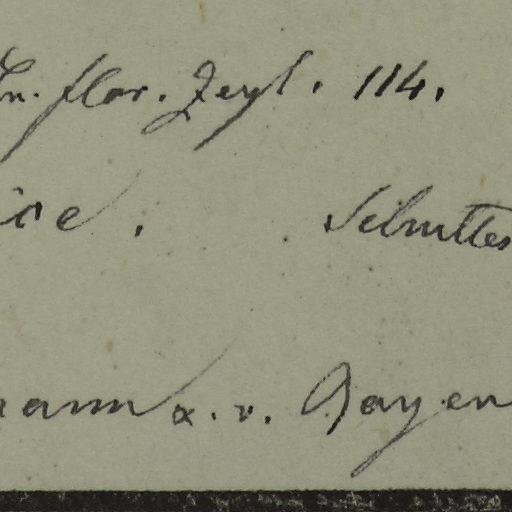 Ln. flor. Zeyl. 114.
ice. Schmittes
mann a. v. Gayen